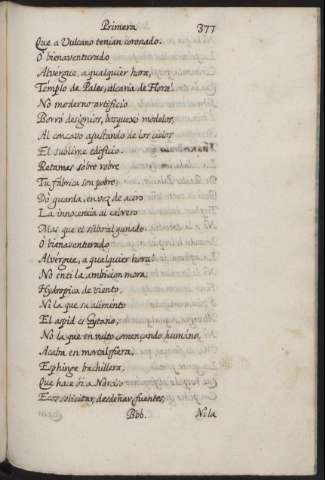 Primera 377
Que a Vulcano tenian coronado.
O bienaventurado
Alvergue, a qualquier hora,
Templo de Pales, alcaria de Flora!
No moderno artificio
Borrò designios, bosquexo modelos,
Al concavo ajustando de los cielos
El sublime edificio.
Retamas sobre robre
Tu fabrica son pobre;
Do guarda, en vez de acero
La innocencia al cabrero
Mas que el silbo al ganado.
O bienaventurado
Alvergue, a qualquier hora!
No en ti la ambicion mora,
Hydropica de viento,
Ni la que su alimento
El aspid es Gytano;
No la que en vulto començando humano,
Acaba en mortal fiera;
Esphinge bachillera,
Que hace oi a Narciso
Ecos solicitar, desdeñar fuentes;
Bbb. Ni la